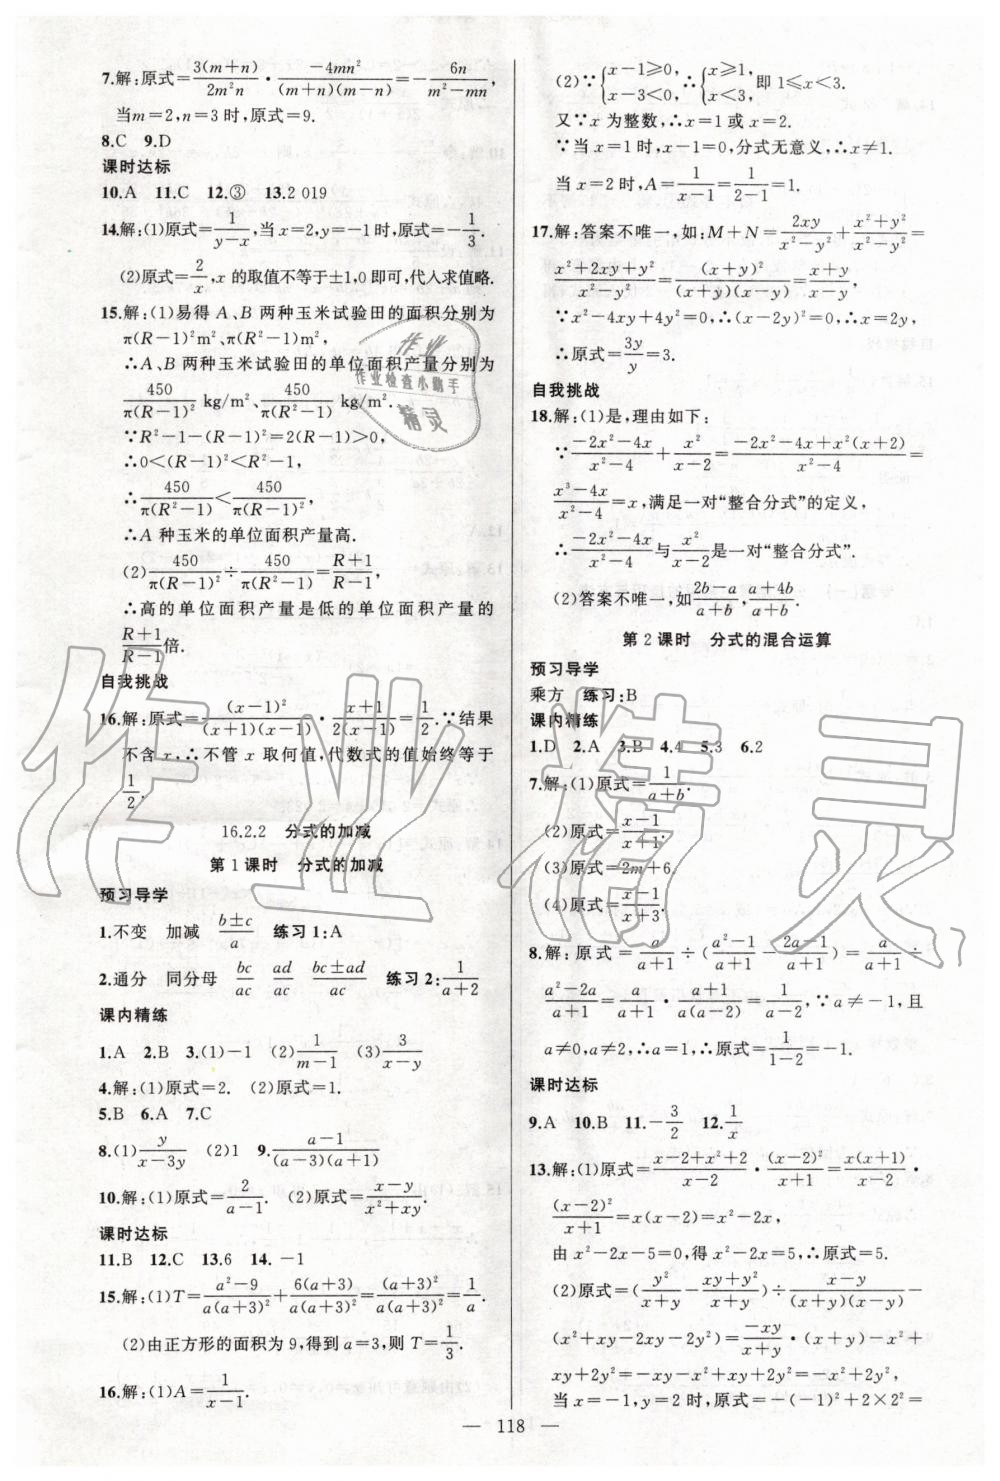 7.解:原式=3(m+n)/2m²n·-4mn²/(m+n)(m-n)=-6n/m²-mn,
当m=2,n=3时,原式=9.
8.C 9.D
课时达标
10.A 11.C 12.③ 13.2 019
14.解:(1)原式=1/y-x,当x=2,y=-1时,原式=-1/3.
(2)原式=2/x,x的取值不等于±1,0即可,代入求值略.
15.解:(1)易得A、B两种玉米试验田的面积分别为
π(R-1)²m²,π(R²-1)m²,
∴A、B两种玉米试验田的单位面积产量分别为
450/π(R-1)² kg/m²、450/π(R²-1) kg/m².
∵R²-1-(R-1)²=2(R-1)>0,
∴0<(R-1)²<R²-1,
∴450/π(R²-1)<450/π(R-1)²,
∴A种玉米的单位面积产量高.
(2)450/π(R-1)²÷450/π(R²-1)=R+1/R-1,
∴高的单位面积产量是低的单位面积产量的
R+1/R-1倍.
自我挑战
16.解:原式=(x-1)²/(x+1)(x-1)·x+1/2(x-1)=1/2.∵结果
不含x,∴不管x取何值,代数式的值始终等于
1/2.
16.2.2 分式的加减
第1课时 分式的加减
预习导学
1.不变 加减 b±c/a 练习1:A
2.通分 同分母 bc/ac ad/ac bc±ad/ac 练习2:1/a+2
课内精练
1.A 2.B 3.(1)-1 (2)1/m-1 (3)3/x-y
4.解:(1)原式=2. (2)原式=1.
5.B 6.A 7.C
8.(1)y/x-3y (2)1 9.a-1/(a-3)(a+1)
10.解:(1)原式=2/a-1. (2)原式=x-y/x²+xy.
课时达标
11.B 12.C 13.6 14.-1
15.解:(1)T=a²-9/a(a+3)²+6(a+3)/a(a+3)²=(a+3)²/a(a+3)²=1/a.
(2)由正方形的面积为9,得到a=3,则T=1/3.
16.解:(1)A=1/x-1.
(2)∵{x-1≥0, x-3<0, ∴{x≥1, x<3, 即1≤x<3.
又∵x为整数,∴x=1或x=2.
∵当x=1时,x-1=0,分式无意义,∴x≠1.
当x=2时,A=1/x-1=1/2-1=1.
17.解:答案不唯一,如:M+N=2xy/x²-y²+x²+y²/x²-y²=
x²+2xy+y²/x²-y²=(x+y)²/(x+y)(x-y)=x+y/x-y,
∵x²-4xy+4y²=0,∴(x-2y)²=0,∴x=2y,
∴原式=3y/y=3.
自我挑战
18.解:(1)是,理由如下:
∵-2x²-4x/x²-4+x²/x-2=-2x²-4x+x²(x+2)/x²-4=
x³-4x/x²-4=x,满足一对“整合分式”的定义,
∴-2x²-4x/x²-4与x²/x-2是一对“整合分式”.
(2)答案不唯一,如2b-a/a+b,a+4b/a+b.
第2课时 分式的混合运算
预习导学
乘方 练习:B
课内精练
1.D 2.A 3.B 4.4 5.3 6.2
7.解:(1)原式=1/a+b.
(2)原式=x-1/x+1.
(3)原式=2m+6.
(4)原式=x-1/x+3.
8.解:原式=a/a+1÷(a²-1/a+1-2a-1/a+1)=a/a+1÷
a²-2a/a+1=a/a+1·a+1/a(a-2)=1/a-2,∵a≠-1,且
a≠0,a≠2,∴a=1,∴原式=1/1-2=-1.
课时达标
9.A 10.B 11.-3/2 12.1/x
13.解:(1)原式=x-2+x²+2/x-2·(x-2)²/x+1=x(x+1)/x-2·
(x-2)²/x+1=x(x-2)=x²-2x,
由x²-2x-5=0,得x²-2x=5,∴原式=5.
(2)原式=(y²/x+y-xy+y²/x+y)÷x-y/(x+y)(x-y)·
(x²+xy-2xy-2y²)=-xy/x+y·(x+y)-x²+
xy+2y²=-xy-x²+xy+2y²=-x²+2y²,
当x=-1,y=2时,原式=-(-1)²+2×2²=
118
作业精灵
作业
作业检查小助手
精灵